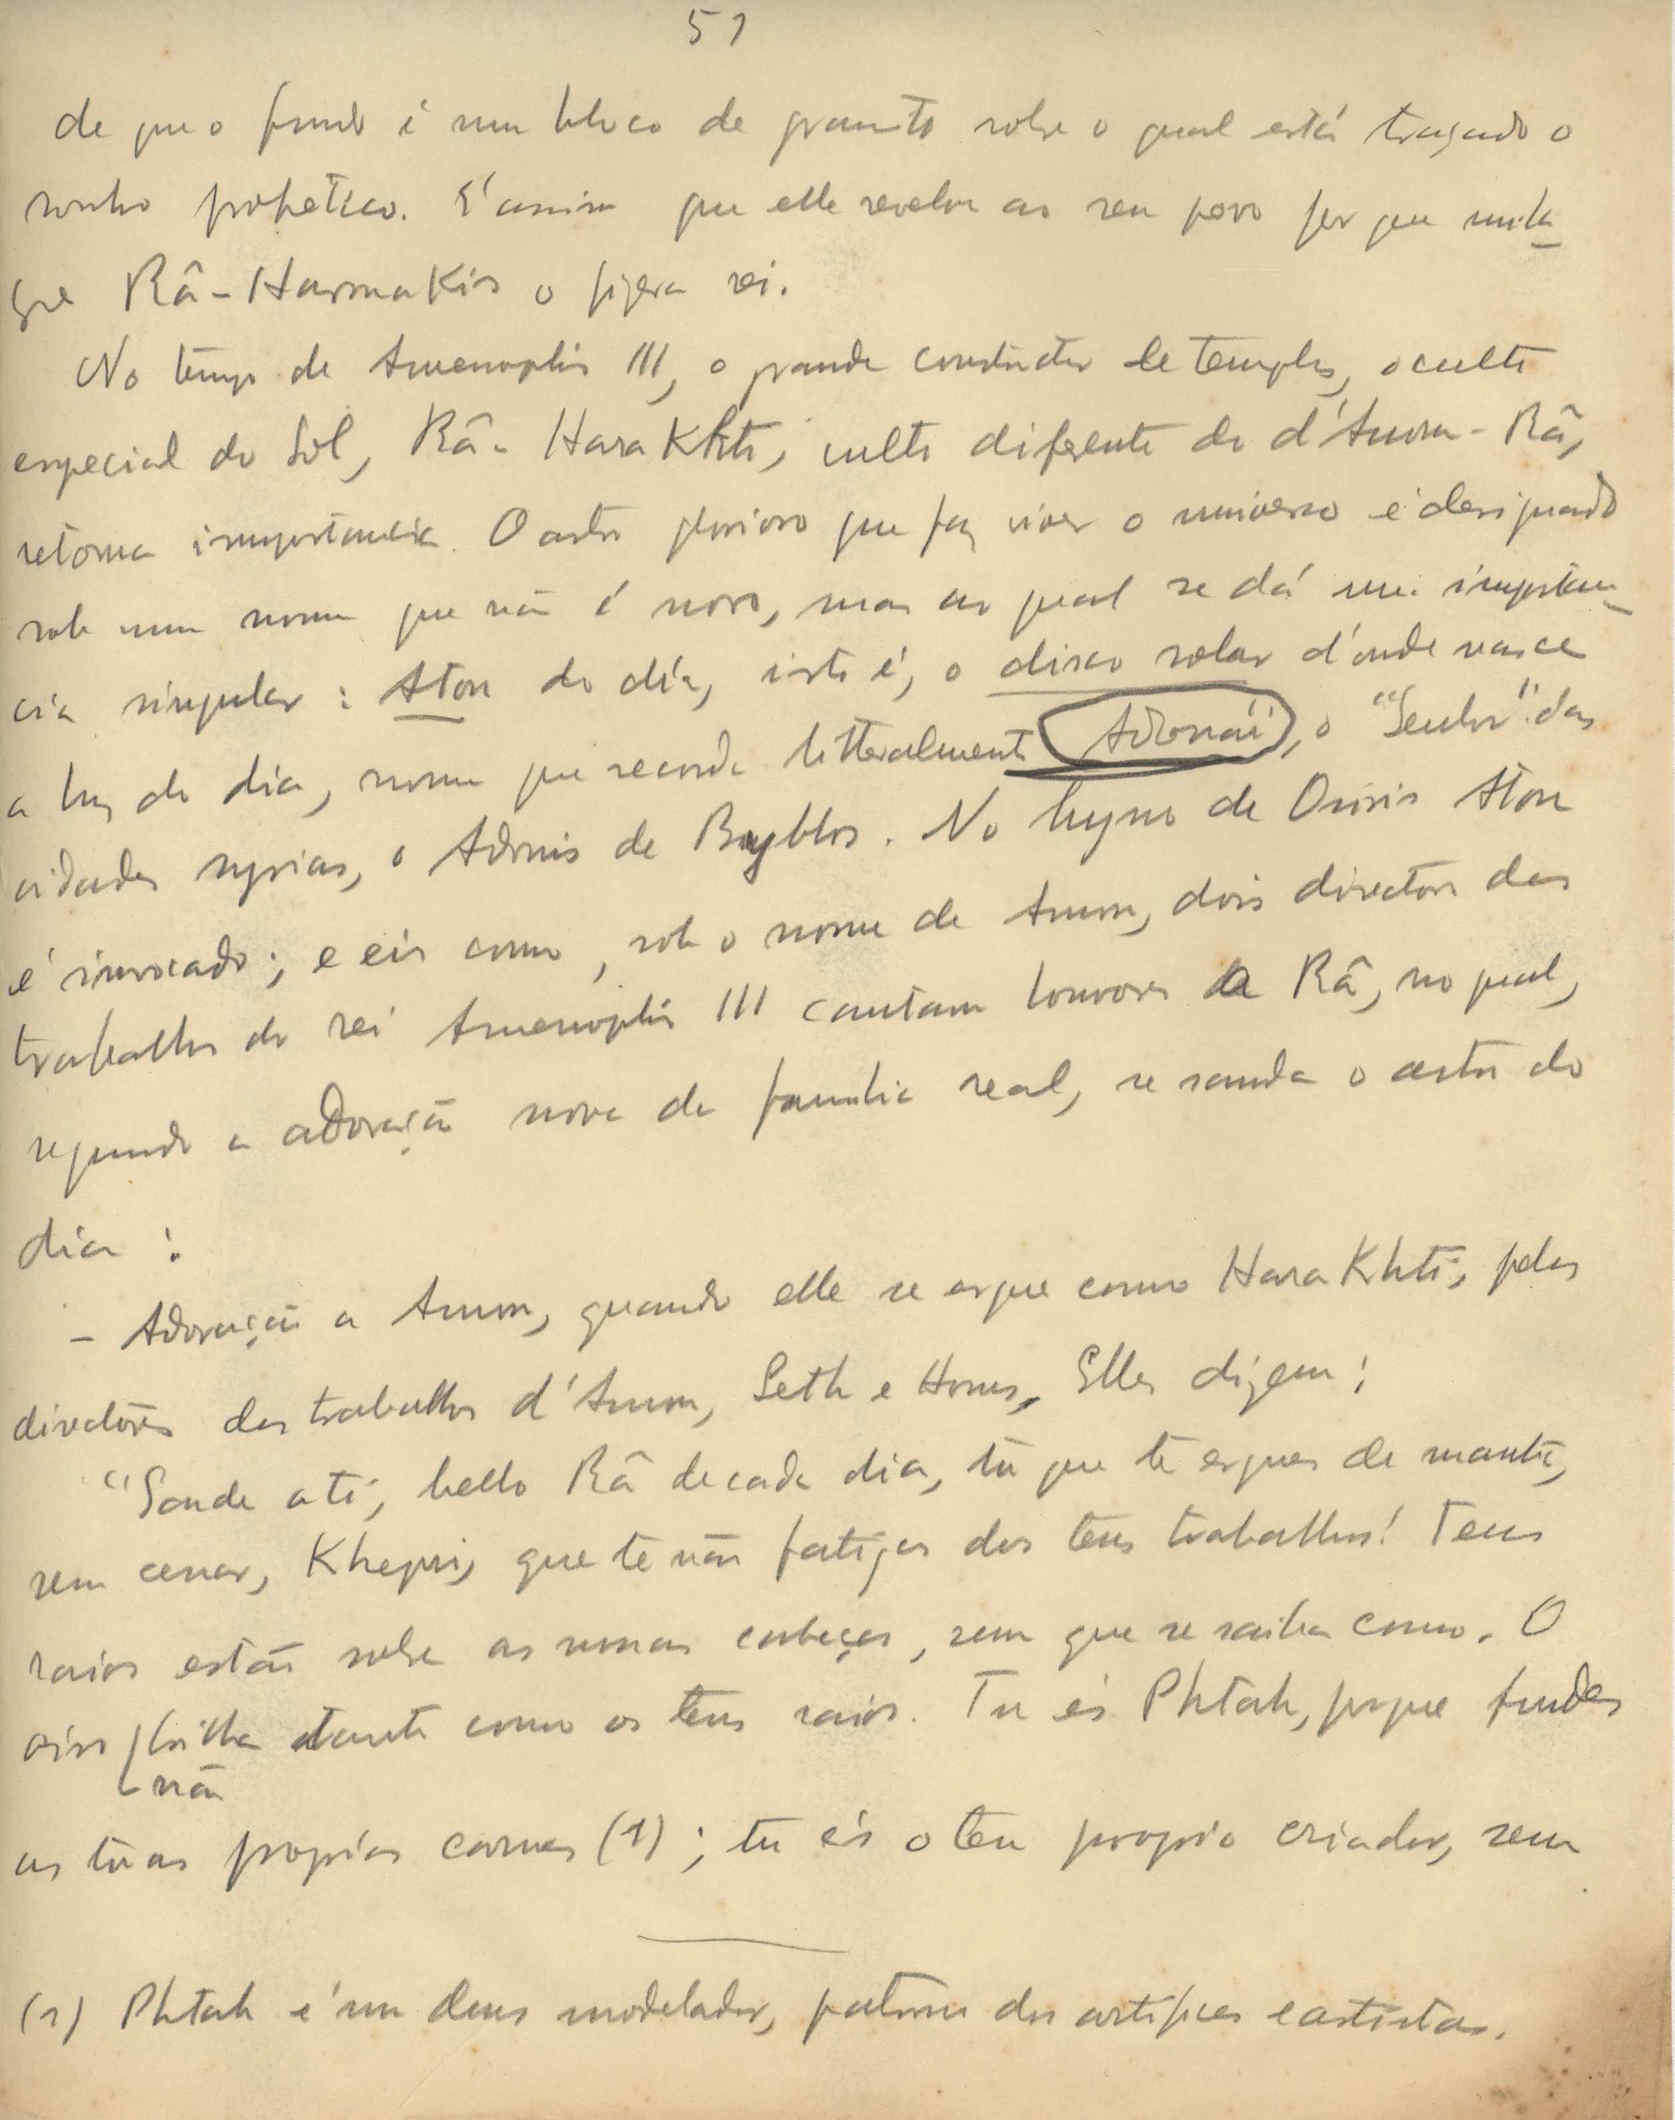 57
de que o fundo é um bloco de granito sobre o qual está traçado o
sonho prophetico. É assim que elle revelou ao seu povo por que mila-
gre Râ-HarmaKis o fizera rei.
No tempo de Amenophis III, o grande constructor de templos, o culto
especial do Sol, Râ-HaraKhti, culto diferente do d'Amon-Râ,
retoma importancia. O astro glorioso que faz viver o universo é designado
sob um nome que não é novo, mas ao qual se dá uma importan-
cia singular: Aton do dia, isto é, o disco solar d'onde nasce
a luz do dia, nome que recorda litteralmente Adonaï, o "Senhor" das
cidades syrias, o Adonis de Byblos. No hymno de Osiris Aton
é invocado; e eis como, sob o nome de Amon, dois directores dos
trabalhos do rei Amenophis III cantam louvores a Râ, no qual,
segundo a adoração nova da familia real, se sauda o astro do
dia:
- Adoração a Amon, quando elle se ergue como HaraKhti, pelos
directores dos trabalhos d'Amon, Seth e Horus. Elles dizem:
"Saude a ti, bello Râ de cada dia, tu que te ergues de manhã,
sem cessar, Khepri, que te não fatigas dos teus trabalhos! Teus
raios estão sobre as nossas cabeças, sem que se saiba como. O
oiro brilha tanto como os teus raios. Tu és Phtah, porque fundes
não
as tuas proprias carnes (1); tu és o teu proprio criador, sem
(1) Phtah é um deus modelador, patrono dos artifices e artistas.